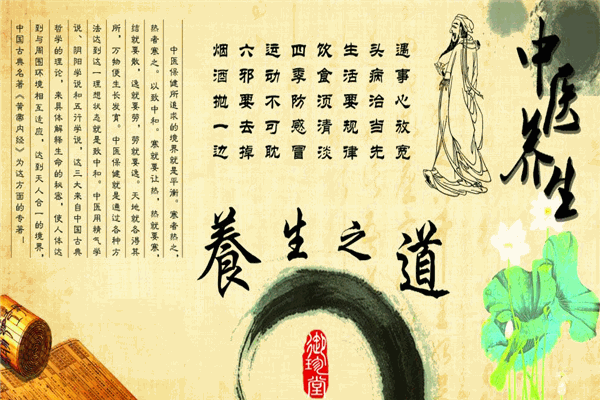 中医养生
遇事心放宽
头病治当先
生活要规律
饮食须清淡
四季防感冒
运动不可耽
六邪要去掉
烟酒抛一边
養生之道
御珍堂
中医保健所追求的境界就是平衡。寒者热之,
热者寒之。以致中和。寒就要让热,热就要寒,
结就要散,逸就要劳,劳就要逸。天地就各得其
所,万物便生长发育。中医保健就是通过各种方
法达到这一理想状态就是致中和。中医用精气学
说、阴阳学说和五行学说,这三大来自中国古典
哲学的理论,来具体解释生命的秘密,使人体达
到与周围环境相互适应,达到天人合一的境界,
中国古典名著《黄帝内经》为这方面的专著—